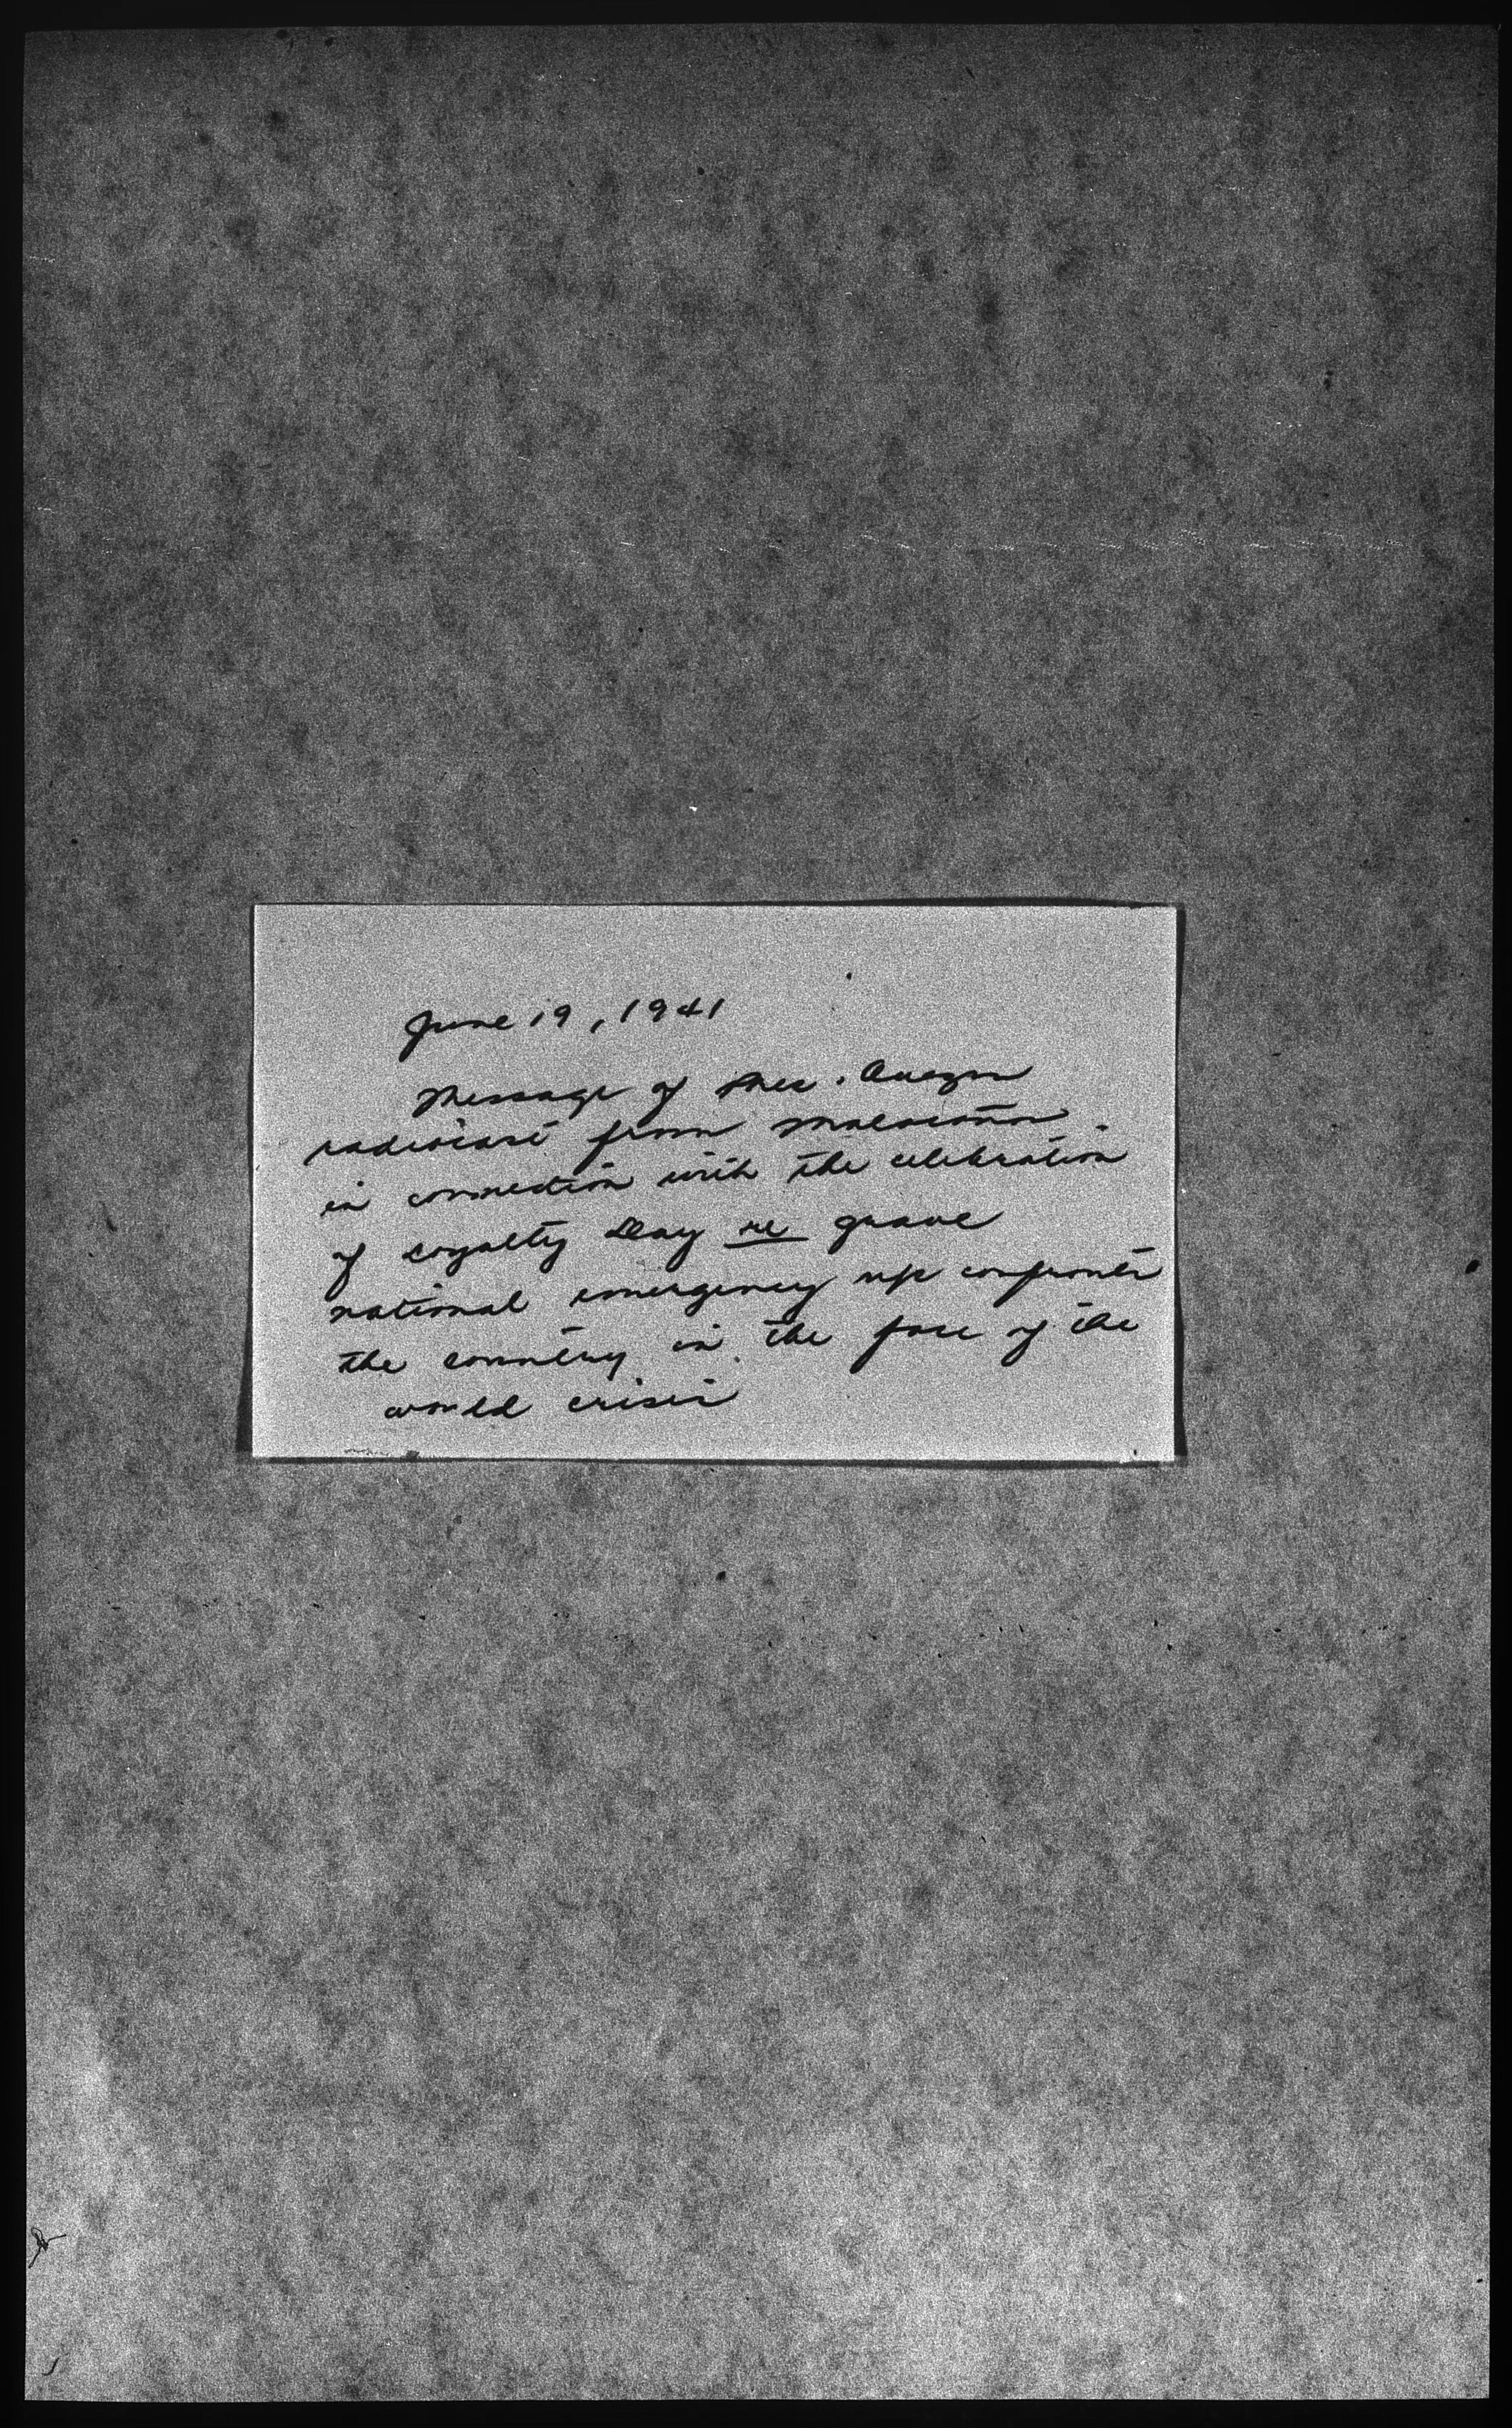 June 19, 1941
Message of Pres. Quezon
radiocast from Malacañan
in connection with the celebration
of Loyalty Day re grave
national emergency confronts
the country in the face of the
world crisis